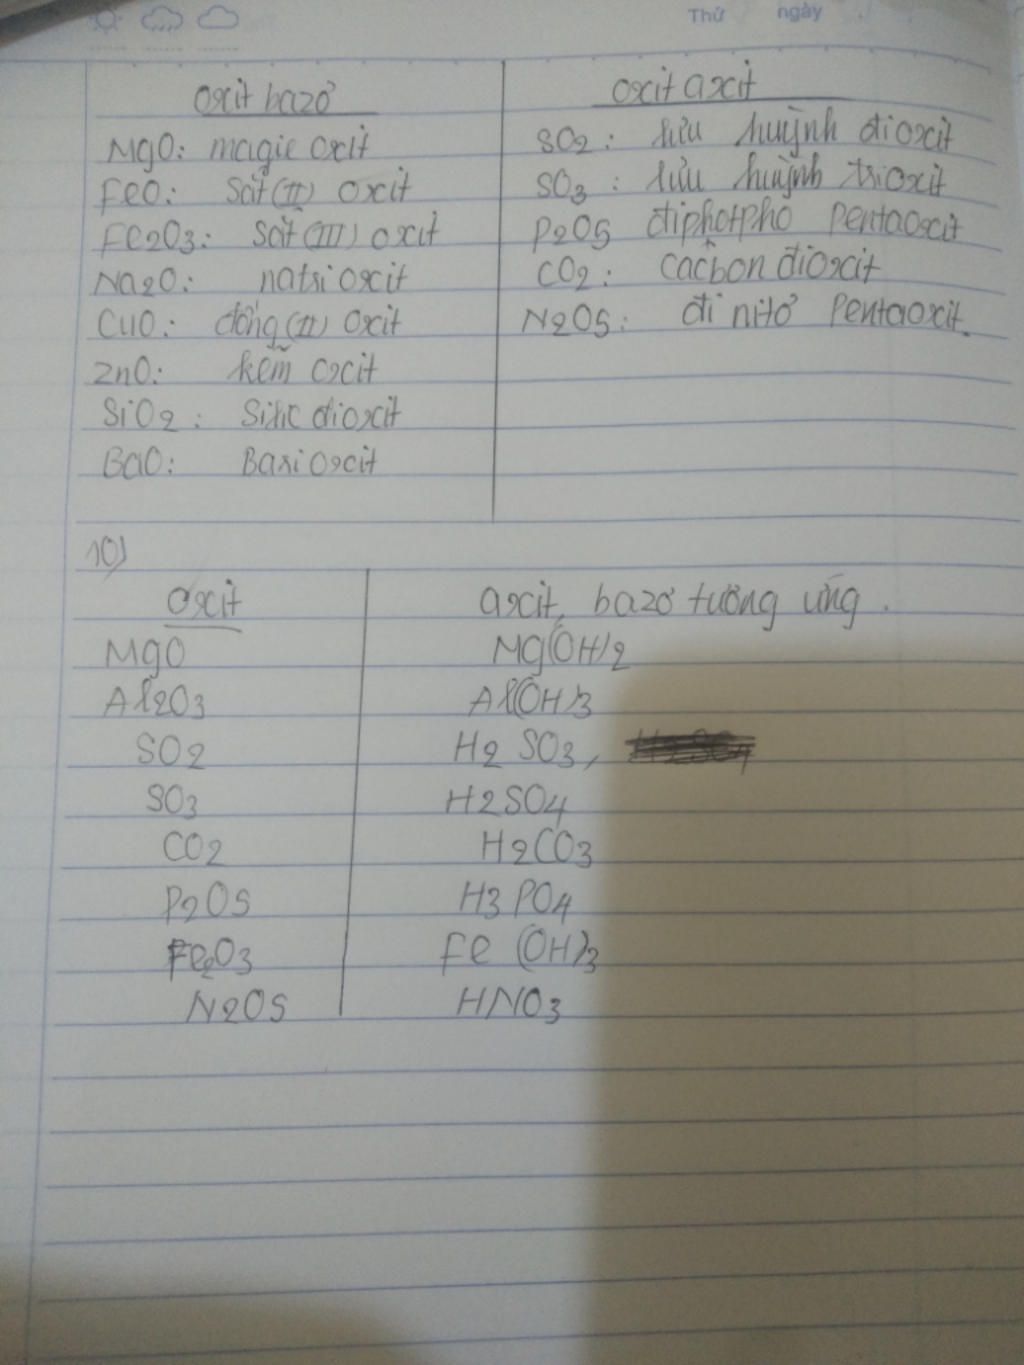 Thứ ngày
oxit bazơ oxit axit
MgO: magie oxit SO2: lưu huỳnh đioxit
FeO: sắt (II) oxit SO3: lưu huỳnh trioxit
Fe2O3: sắt (III) oxit P2O5 điphotpho pentaoxit
Na2O: natri oxit CO2: cacbon đioxit
CuO: đồng (II) oxit N2O5: đi nitơ pentaoxit.
ZnO: kẽm oxit
SiO2: Silic đioxit
BaO: Bari oxit
10)
oxit axit, bazơ tương ứng.
MgO Mg(OH)2
Al2O3 Al(OH)3
SO2 H2SO3,
SO3 H2SO4
CO2 H2CO3
P2O5 H3PO4
Fe2O3 Fe(OH)3
N2O5 HNO3